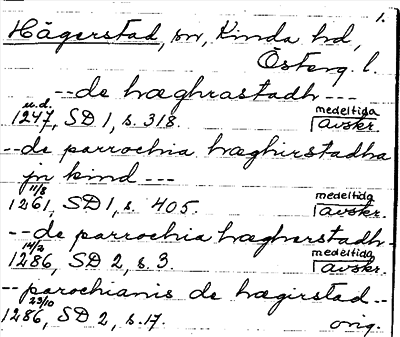 1.
Hägerstad, sn, Kinda hd,
Österg. l.
--de hæghrastadh---
u.d. medeltida
1247, SD 1, s. 318. avskr.
--de parrochia hæghirstadha
jn kind ---
11/8 medeltida
1261, SD 1, s. 405. avskr.
--de parrochia hægherstadh--
14/2 medeltida
1286, SD 2, s. 3. avskr.
--parochianis de hægirstad--
23/10
1286, SD 2, s. 17. orig.